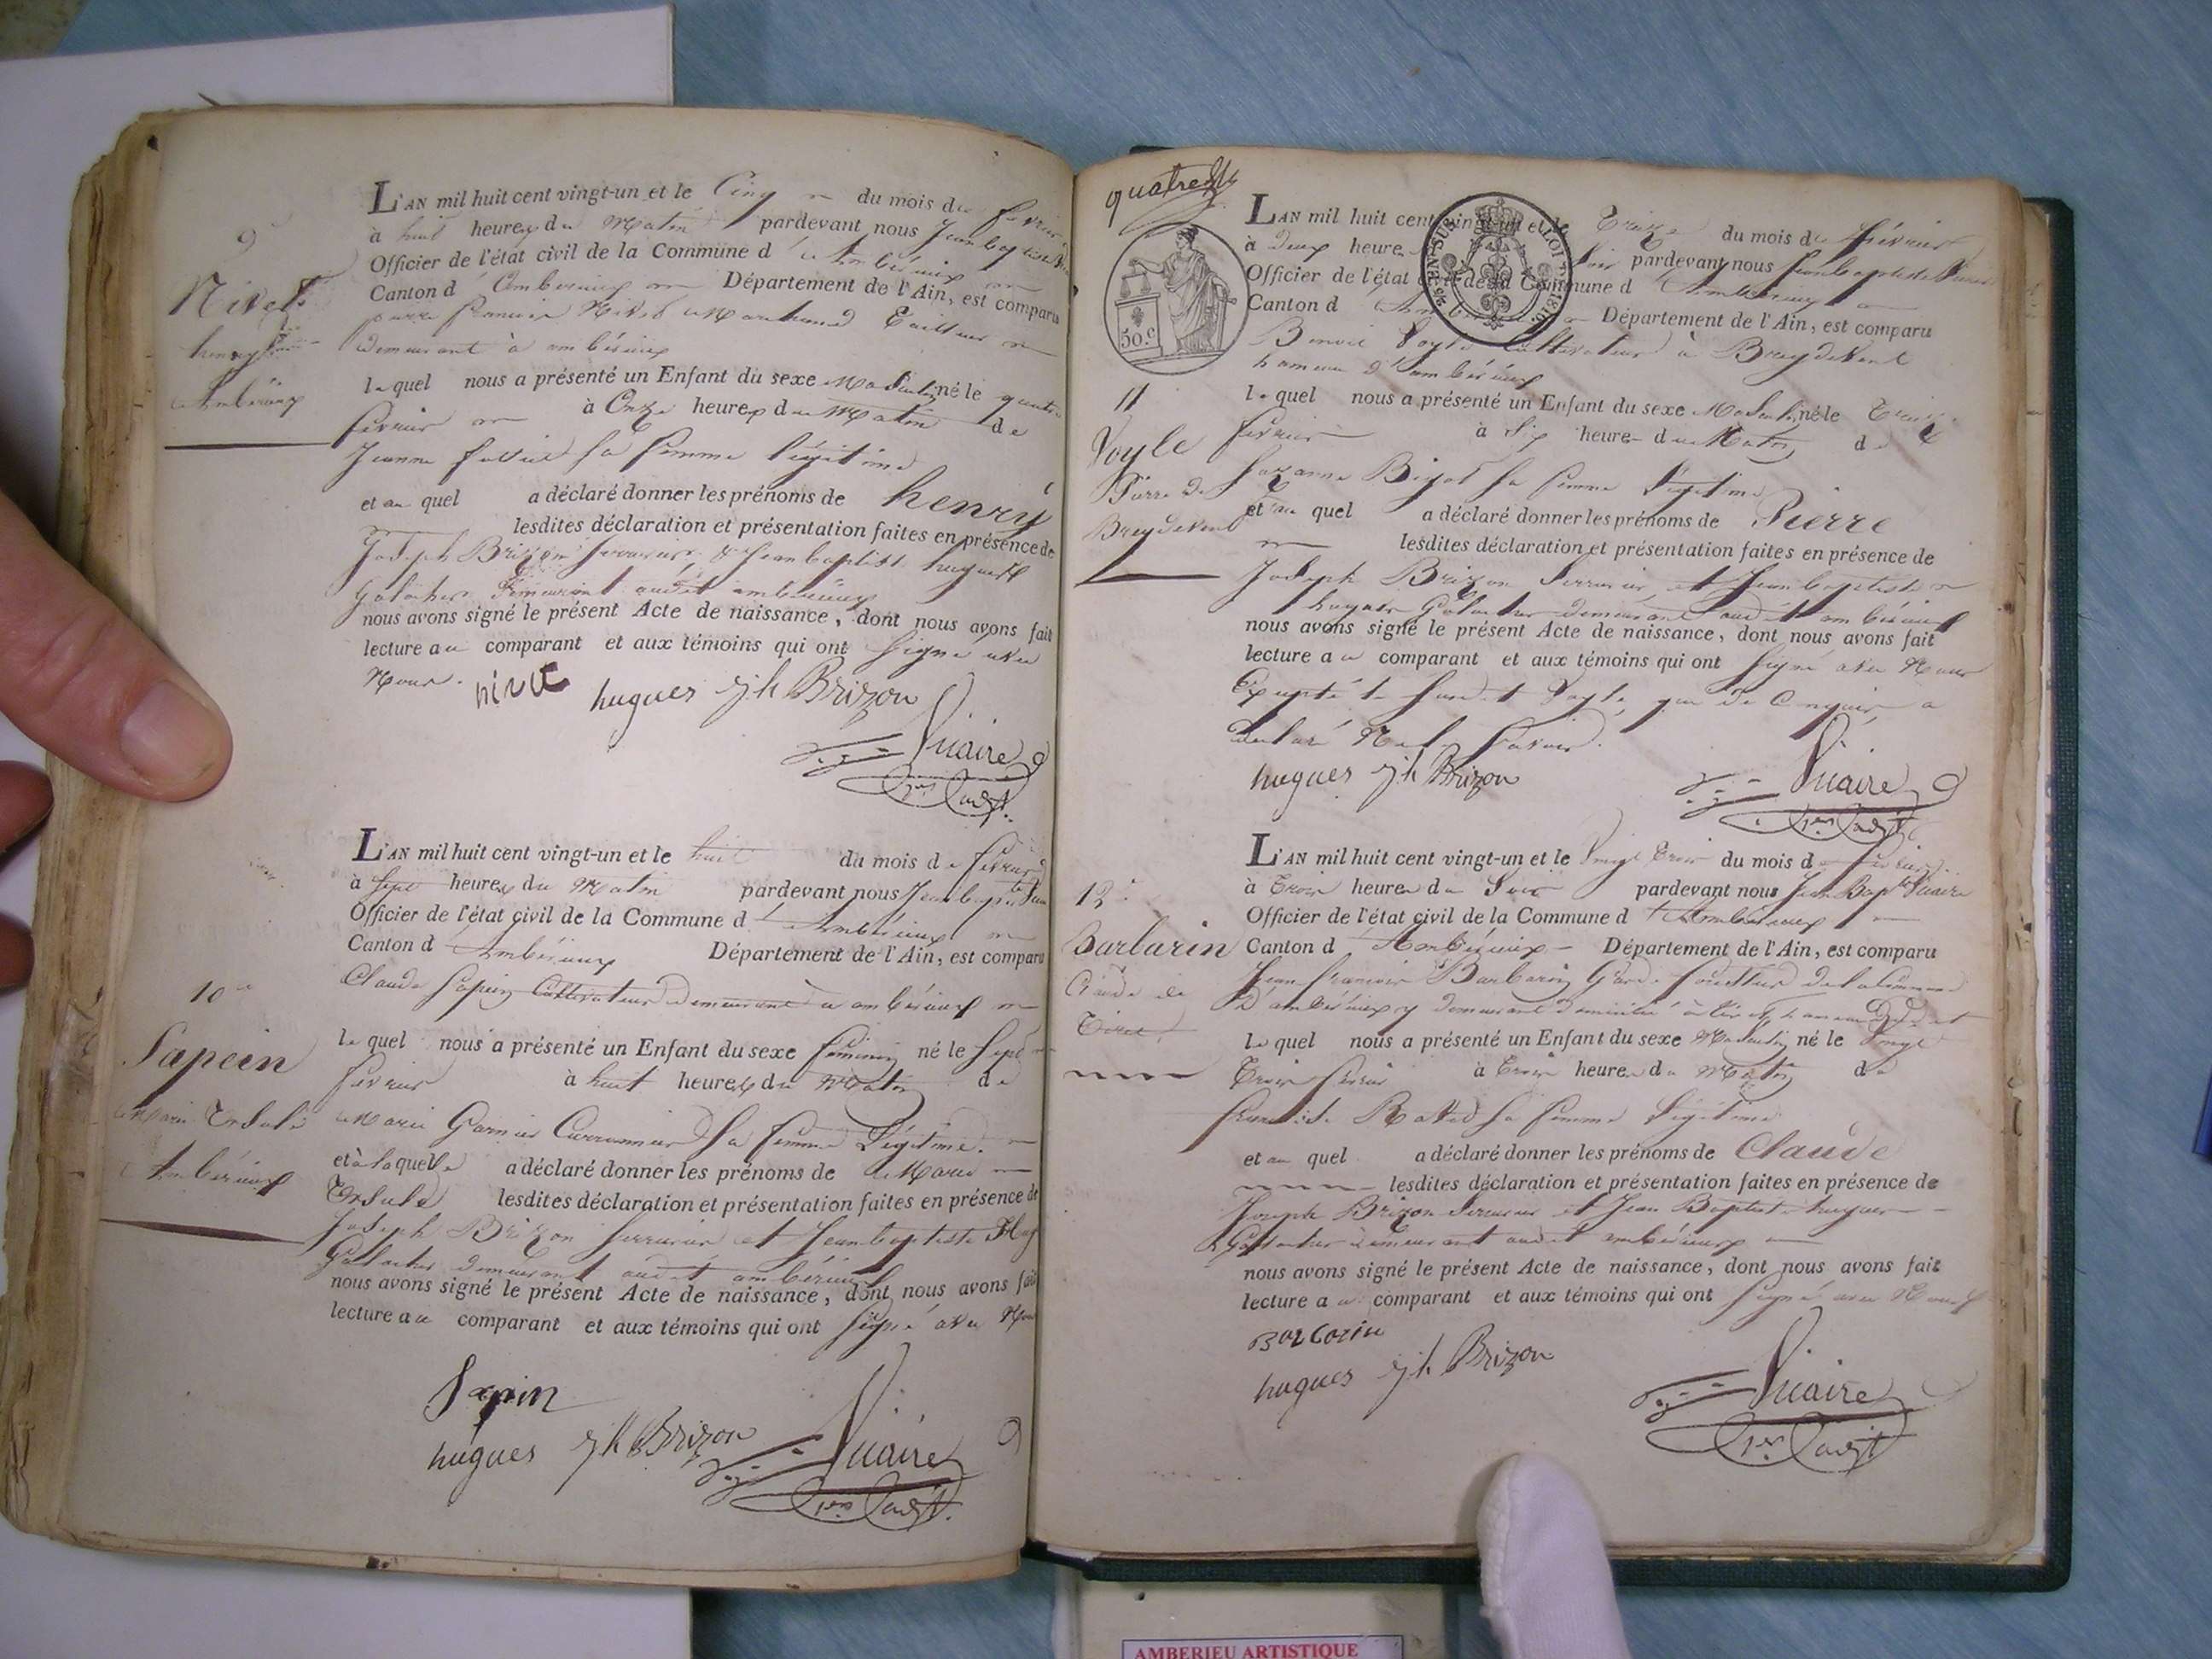 9e
Nivet
henry
Ambérieux
L'AN mil huit cent vingt-un et le Cinq du mois de fevrier
à huit heures du Matin pardevant nous Jean baptiste
Officier de l'état civil de la Commune d'Ambérieux
Canton d'Ambérieux Département de l'Ain, est comparu
pierre françois Nivet Marchand Tailleur
demeurant à ambérieux
lequel nous a présenté un Enfant du sexe Masculin né le quatre
fevrier à Onze heures du Matin de
Jeanne sa femme légitime
et au quel a déclaré donner les prénoms de henry
lesdites déclaration et présentation faites en présence de
Joseph Brizon Serrurier & Jean baptiste hugues
demeurant audit ambérieux
nous avons signé le présent Acte de naissance, dont nous avons fait
lecture au comparant et aux témoins qui ont signé avec
Nous.
nivet hugues jh Brizon
Vicaire
1er adjt.
10e
Sapein
Marie Ursule
Ambérieux
L'AN mil huit cent vingt-un et le huit du mois de fevrier
à sept heures du Matin pardevant nous Jean baptiste
Officier de l'état civil de la Commune d'Ambérieux
Canton d'Ambérieux Département de l'Ain, est comparu
Claude Sapein Cultivateur demeurant à ambérieux
lequel nous a présenté un Enfant du sexe féminin né le sept
fevrier à huit heures du Matin de
Marie Garnier sa femme Légitime.
et à laquelle a déclaré donner les prénoms de Marie
Ursule lesdites déclaration et présentation faites en présence de
Joseph Brizon serrurier et Jean baptiste Hug
demeurant audit ambérieux
nous avons signé le présent Acte de naissance, dont nous avons fait
lecture au comparant et aux témoins qui ont signé avec Nous
Sapin
hugues jh Brizon Vicaire
1er adjt.
quatre
50.c
LOI DE 1816.
EN SUS
11
Voyle
Pierre de
Breydevent
L'AN mil huit cent vingt-un et le Treize du mois de février
à deux heures Soir pardevant nous Jean baptiste Vicaire
Officier de l'état civil de la Commune d'Ambérieux
Canton d'Ambérieux Département de l'Ain, est comparu
Benoit Voyle Cultivateur à Breydevent
hameau d'ambérieux
lequel nous a présenté un Enfant du sexe Masculin né le Treize
fevrier à Six heures du Matin de
Suzanne sa femme légitime
et au quel a déclaré donner les prénoms de Pierre
lesdites déclaration et présentation faites en présence de
Joseph Brizon Serrurier et Jean baptiste
hugues demeurant audit ambérieux
nous avons signé le présent Acte de naissance, dont nous avons fait
lecture au comparant et aux témoins qui ont signé avec Nous
Excepté le Voyle, qui de Ce enquis a
déclaré Ne le savoir.
hugues jh Brizon Vicaire
1er adjt
12e
Barbarin
Claude de
Tiret
L'AN mil huit cent vingt-un et le Vingt Trois du mois de fevrier
à Trois heures du Soir pardevant nous Jean Bapte Vicaire
Officier de l'état civil de la Commune d'Ambérieux
Canton d'Ambérieux Département de l'Ain, est comparu
Jean françois Barbarin Garde forestier de la Commune
D'ambérieux y demeurant à Tiret hameau Dudit
lequel nous a présenté un Enfant du sexe Masculin né le Vingt
Trois fevrier à Trois heures du Matin de
sa femme légitime
et au quel a déclaré donner les prénoms de Claude
lesdites déclaration et présentation faites en présence de
Joseph Brizon Serrurier et Jean Baptiste hugues
demeurant audit ambérieux
nous avons signé le présent Acte de naissance, dont nous avons fait
lecture au comparant et aux témoins qui ont signé avec Nous
Barbarin
hugues jh Brizon Vicaire
1er adjt
AMBERIEU ARTISTIQUE